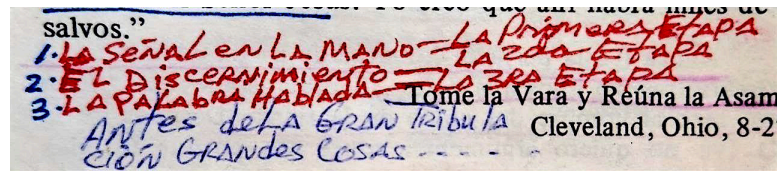 salvos.”
1. LA SEÑAL EN LA MANO = LA PRIMERA ETAPA
2. EL DISCERNIMIENTO = LA 2DA ETAPA
3. LA PALABRA HABLADA = LA 3RA ETAPA
Tome la Vara y Reúna la Asam
ANTES DE LA GRAN TRIBULA
Cleveland, Ohio, 8-2
CIÓN GRANDES COSAS - - - -